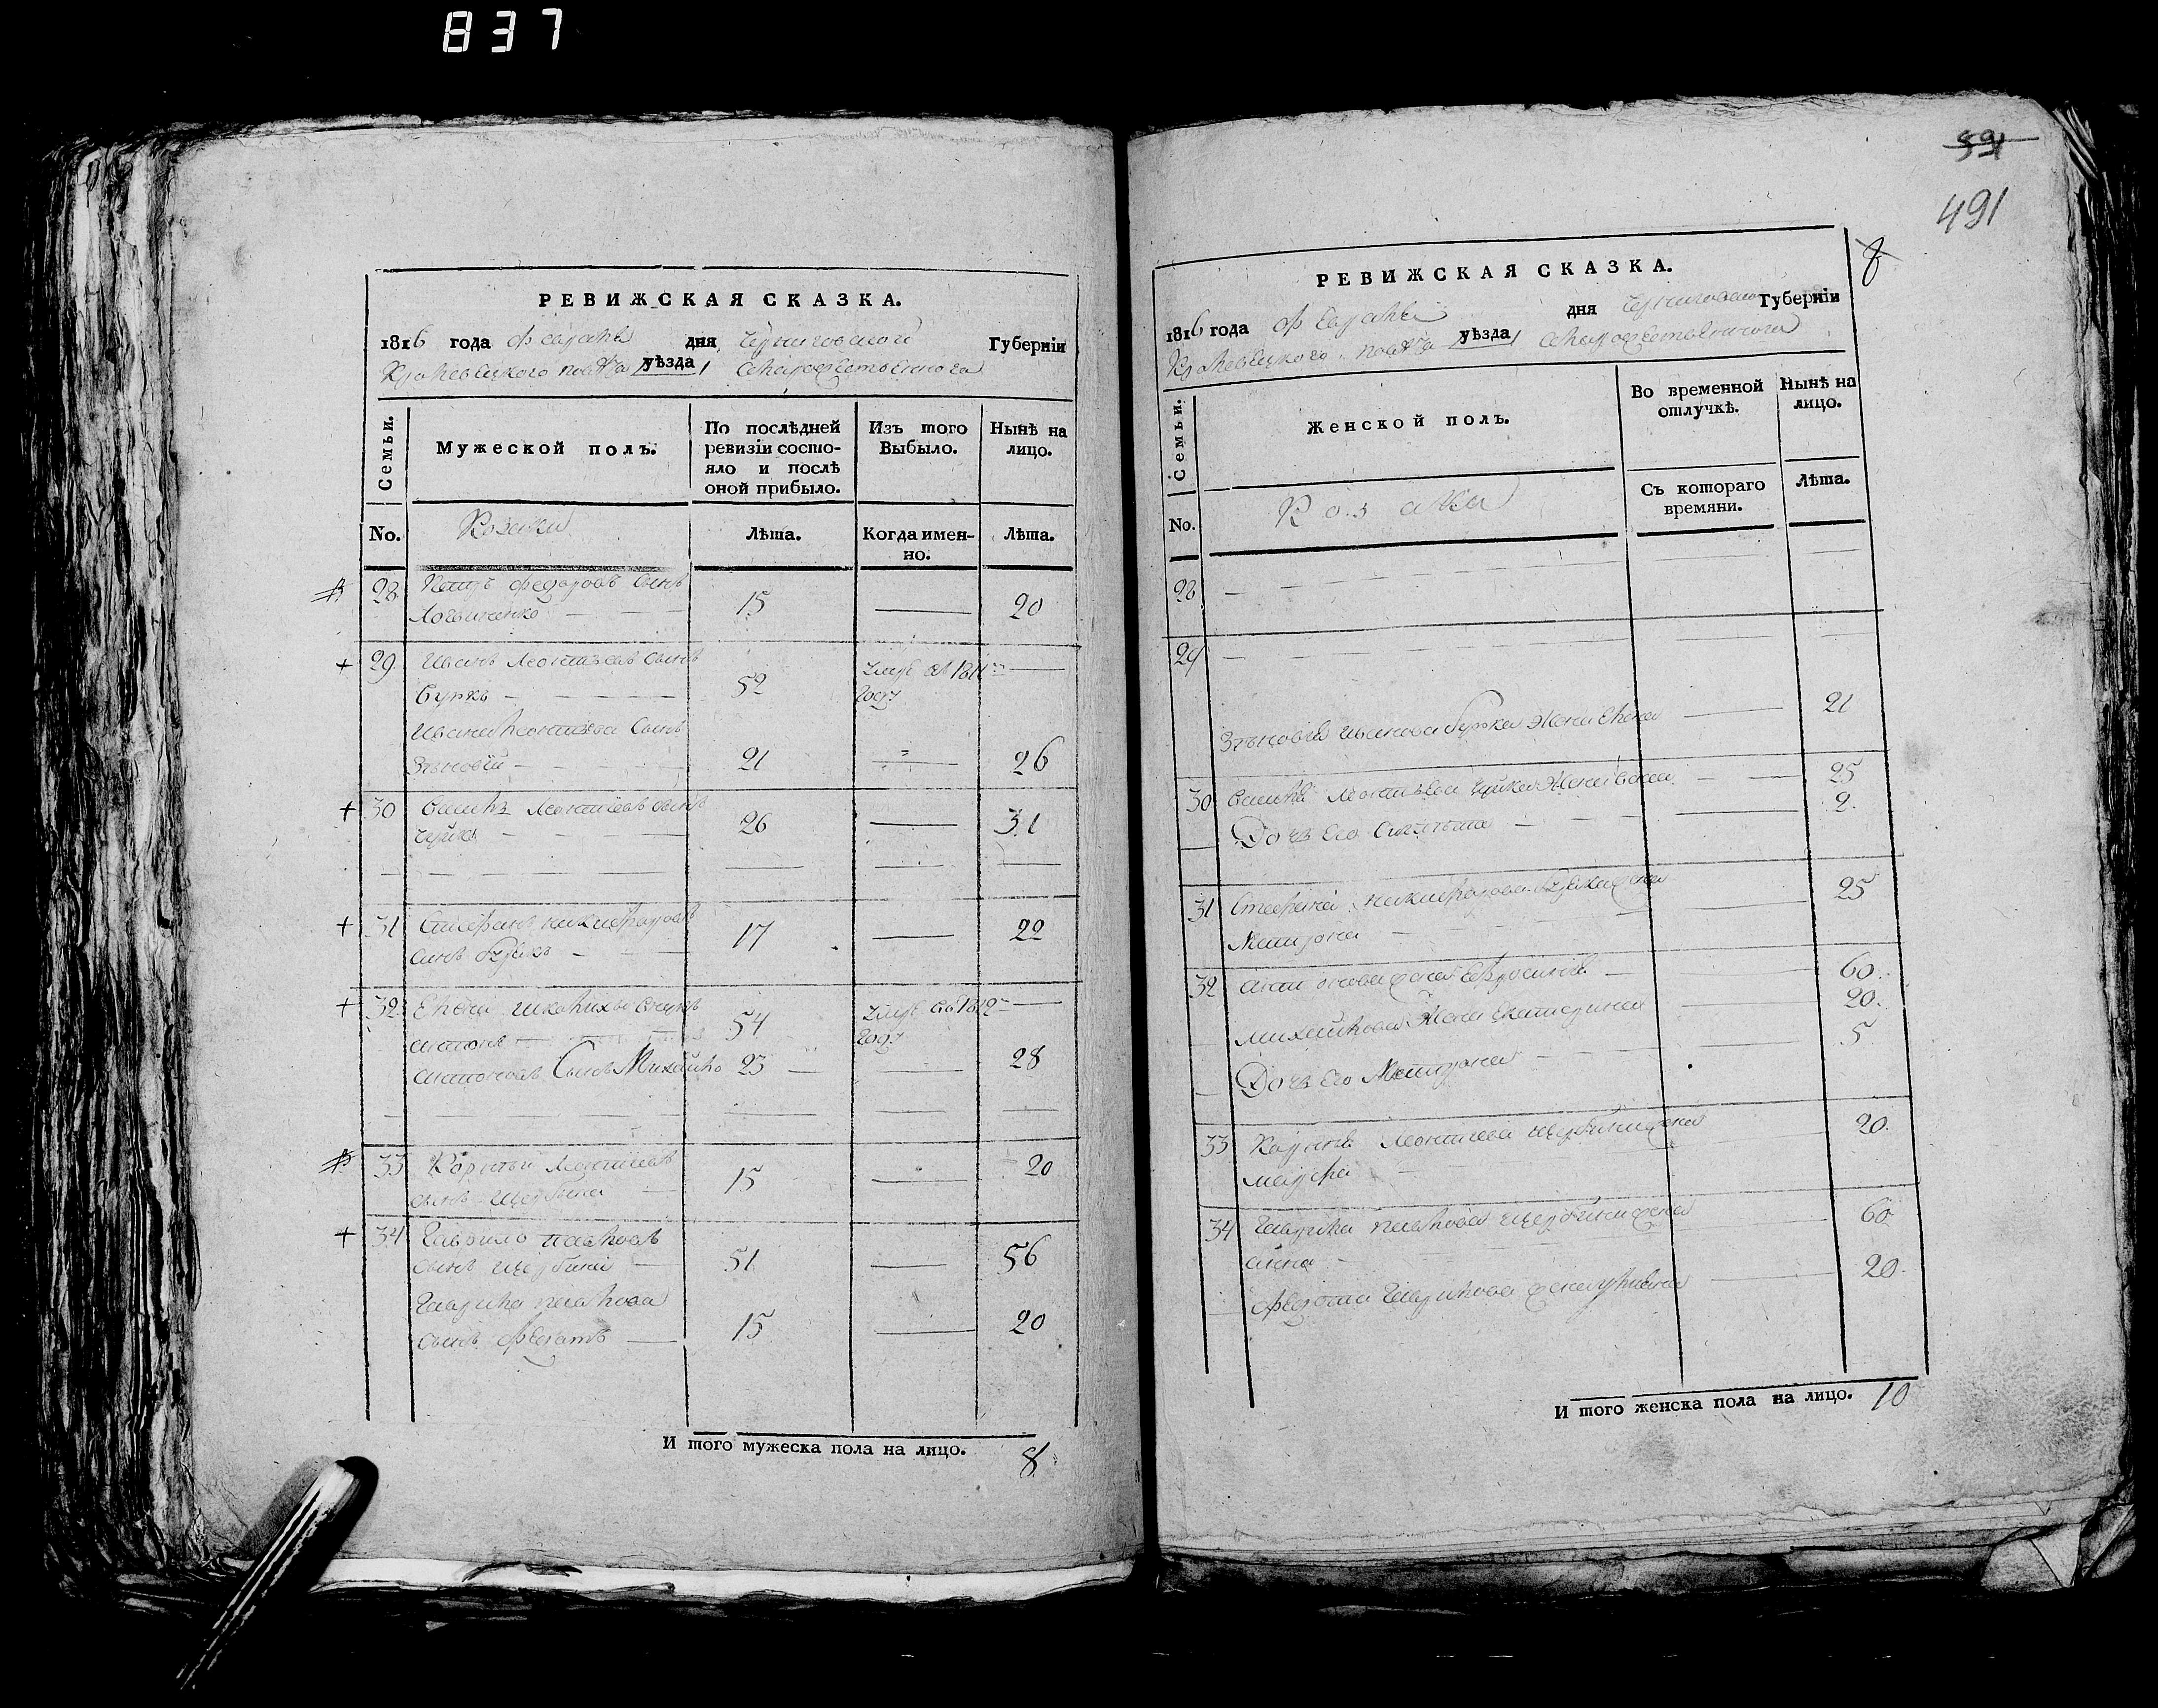 837
РЕВИЖСКАЯ СКАЗКА.
1816 года Февраля дня Черниговской Губерніи
Кролевецкого повѣта уѣзда
Семьи.
Мужеской полъ.
По послѣдней ревизіи состо-
яло и послѣ
оной прибыло.
Изъ того
Выбыло.
Нынѣ на
лицо.
No.
Козаки
Лѣта.
Когда имен-
но.
Лѣта.
28 Петръ Федоровъ сынъ
15 20
29 Иванъ Леонтьевъ сынъ
Буркъ 52 умре въ 1811
году
Ивана Леонтьева сынъ
Зѣновій 21 26
30 Леонтіевъ сынъ
26 31
31 Стефанъ никифоровъ
сынъ 17 22
32 сынъ
антонъ 54 умре въ 1812
году
антоновъ Сынъ Михайло 23 28
33 Корнѣй Леонтіевъ
сынъ щербина 15 20
34 Гаврило павловъ
сынъ щербина 51 56
Гаврила павлова
сынъ Федотъ 15 20
И того мужеска пола на лицо. 8
591
491
8
РЕВИЖСКАЯ СКАЗКА.
1816 года Февраля дня Черниговской Губерніи
Кролевецкого повѣта уѣзда
Семьи.
Женской полъ.
Во временной
отлучкѣ.
Нынѣ на
лицо.
No.
Козаки
Съ котораго
времяни.
Лѣта.
28
29
Зѣновія иванова бурка жена Елена 21
30 Леонтьева жена 25
Дочь его 2
31 Стефана никифорова жена 25
Матрона
32 антонова жена Ефросинія 60
михайлова жена Екатерина 20
Дочь его Матрона 5
33 Корнѣя Леонтіева щербини жена 20
марфа
34 Гаврила павлова щербини жена 60
анна
Федота Гаврилова жена 20
И того женска пола на лицо. 10